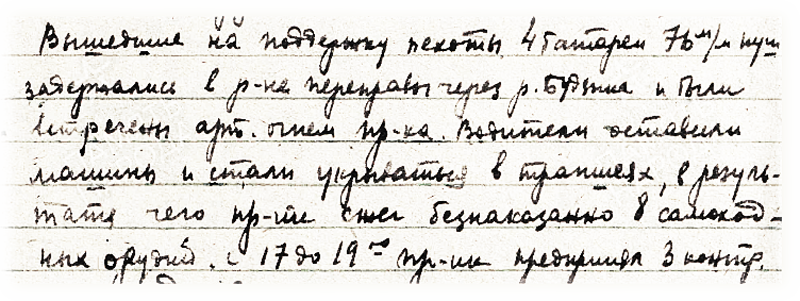 Вышедшие на поддержку пехоты 4 батареи 76 м/м пуш
задержались в р-не переправы через р. и были
встречены арт. огнем пр-ка. Водители оставили
машины и стали укрываться в траншеях, в резуль-
тате чего пр-к сжег безнаказанно 8 самоход-
ных орудий. С 17 до 19 пр-ик предпринял 3 контр.